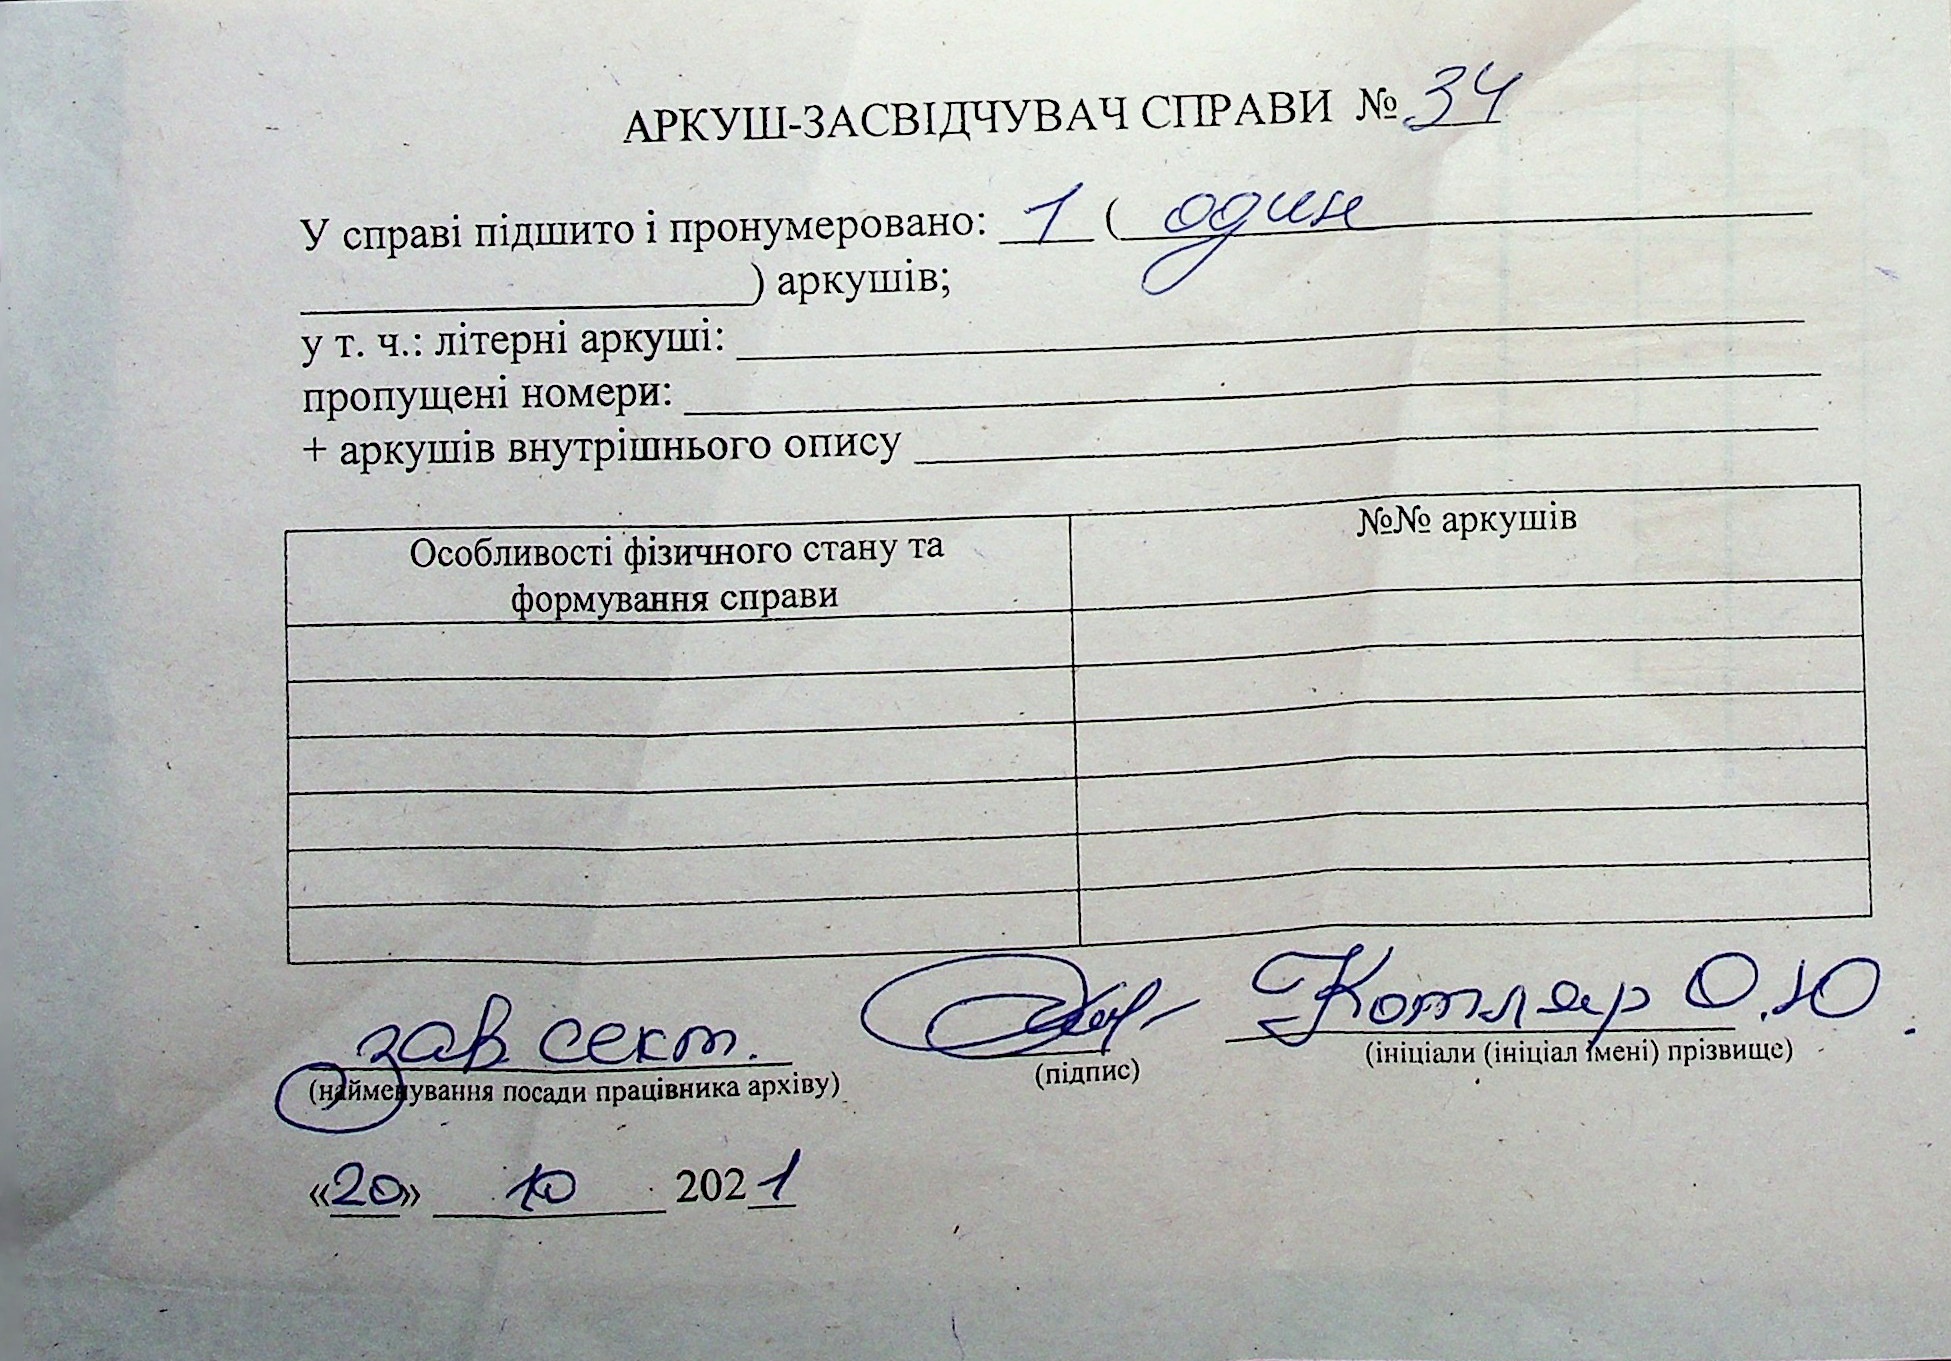 АРКУШ-ЗАСВІДЧУВАЧ СПРАВИ № 34
У справі підшито і пронумеровано: 1 ( один
) аркушів;
у т. ч.: літерні аркуші:
пропущені номери:
+ аркушів внутрішнього опису
Особливості фізичного стану та формування справи
№№ аркушів
зав сект. Котляр О.Ю.
(найменування посади працівника архіву) (підпис) (ініціали (ініціал імені) прізвище)
«20» 10 2021